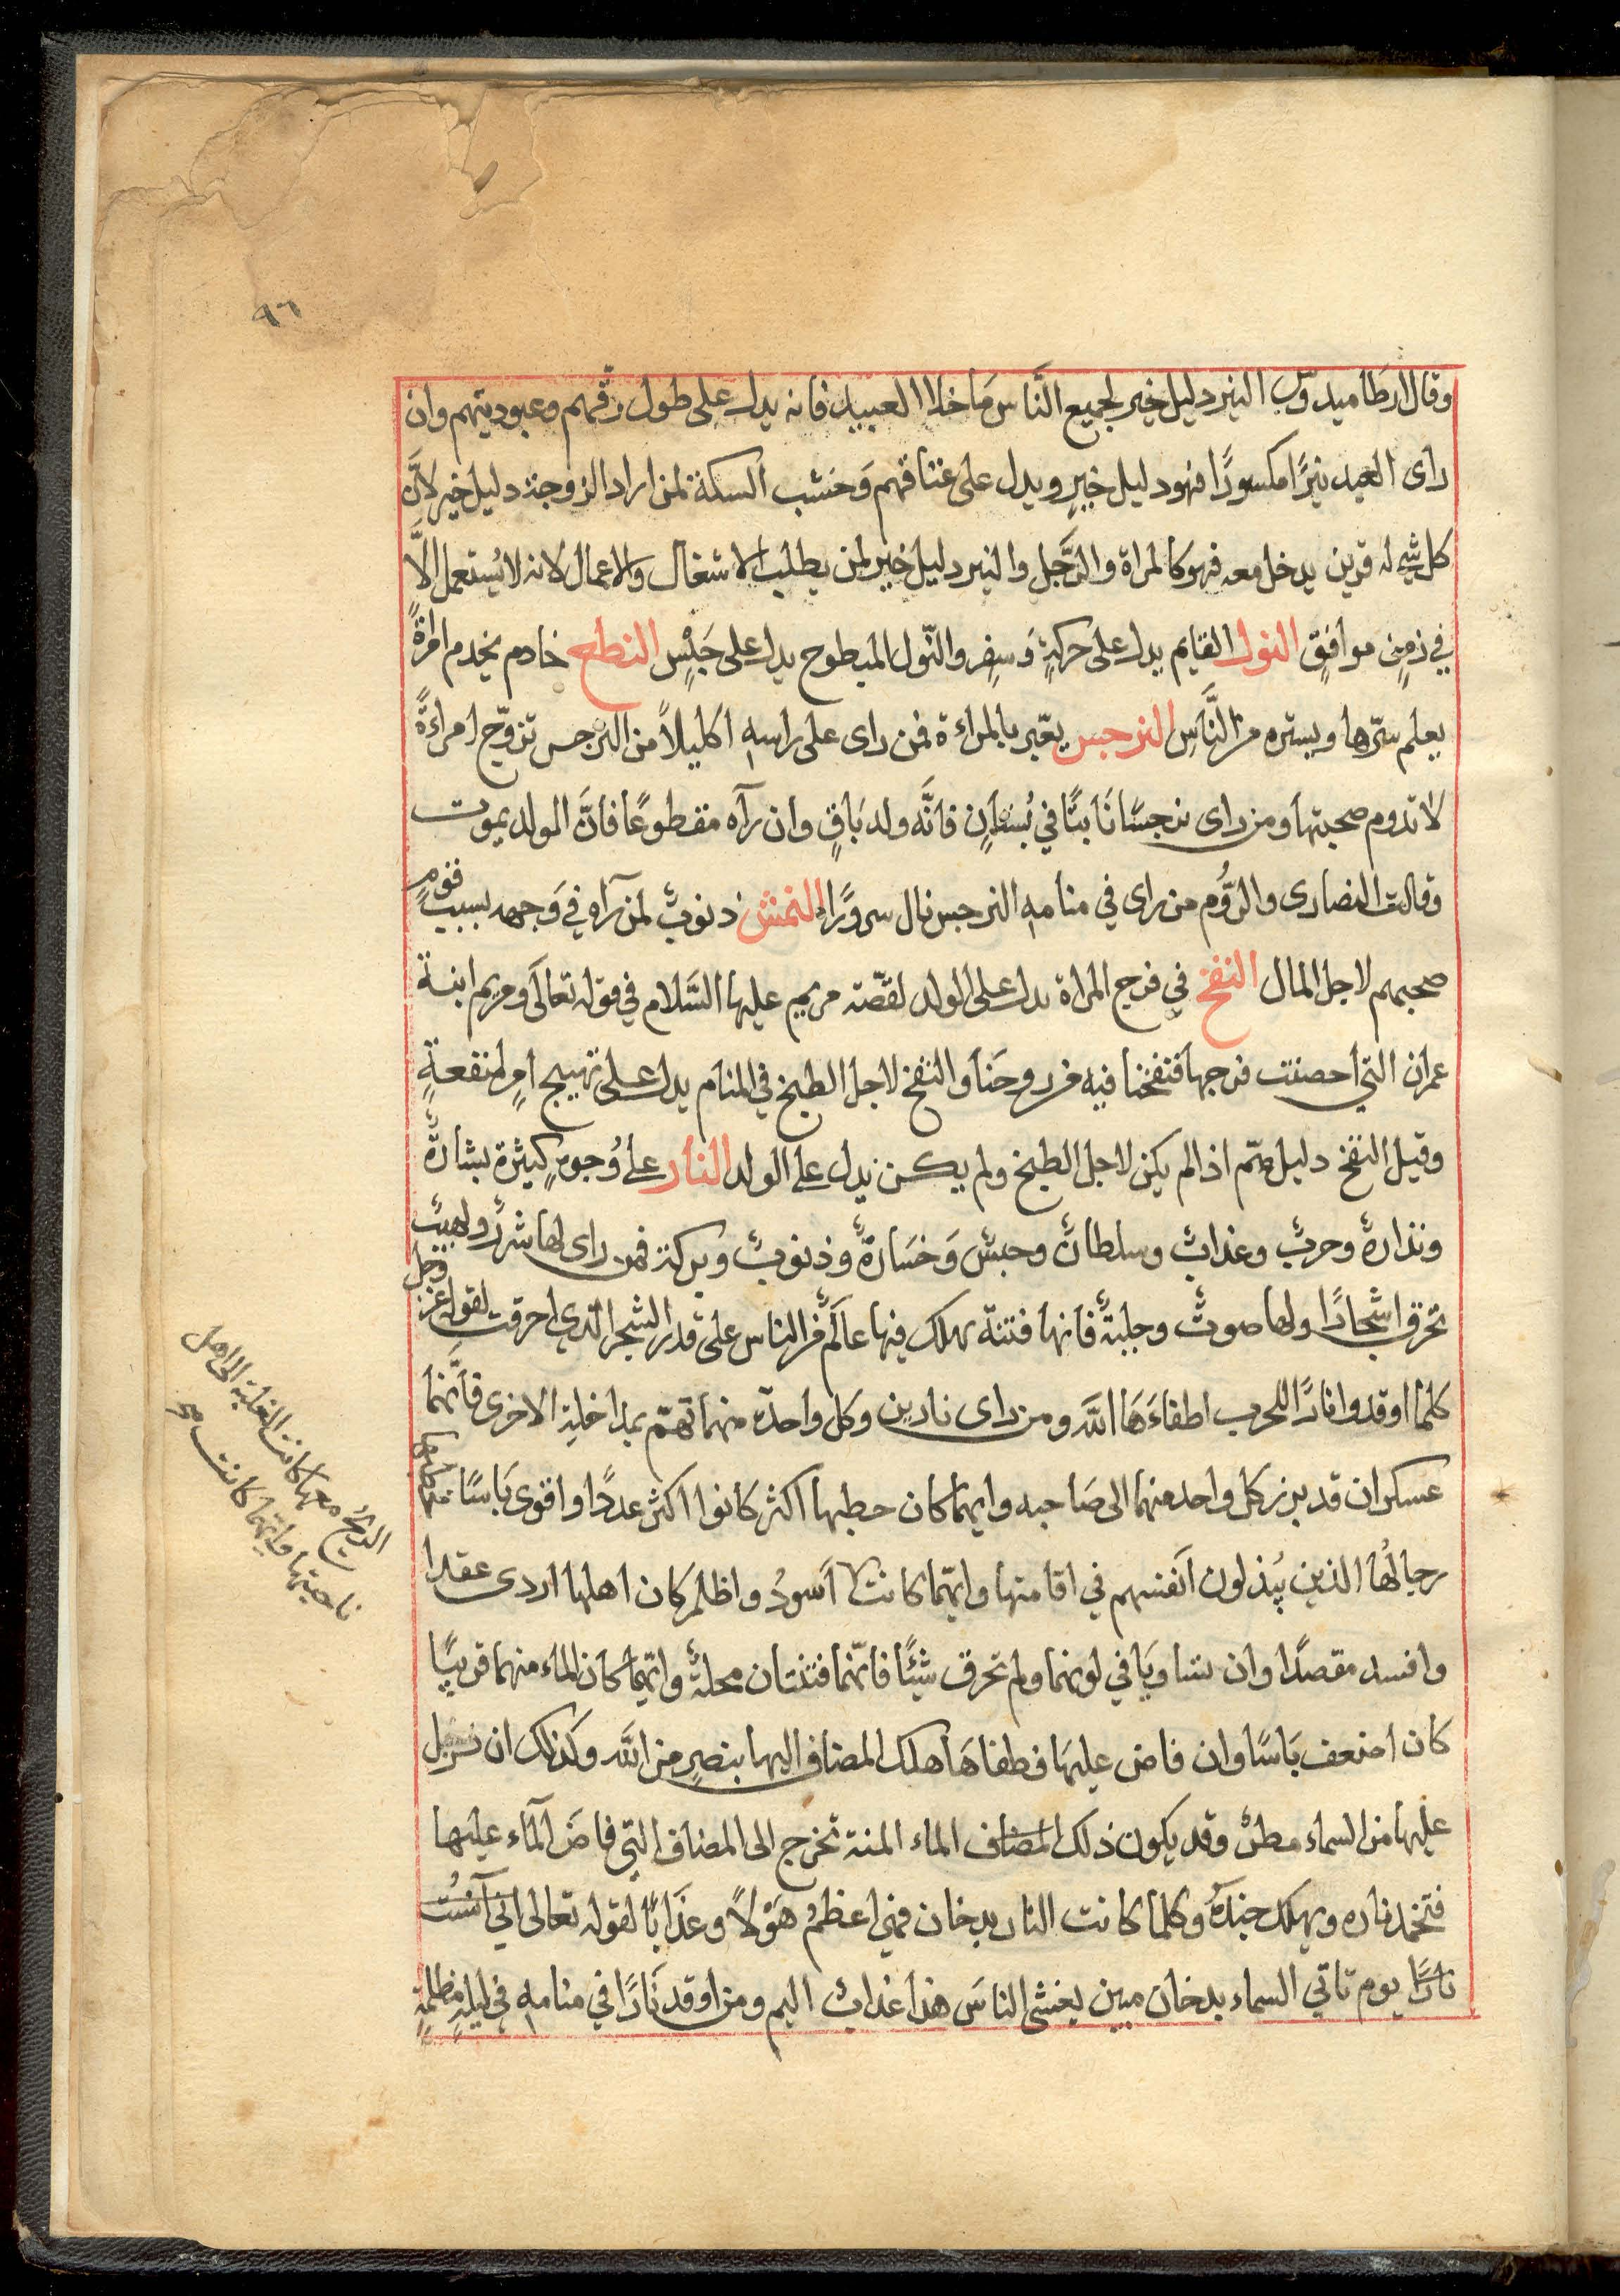 ٩٦
وقال ارطاميدوس النير دليل خير لجميع النَّاس مَا خلا العبيد فانه يدل على طول رقّهم وعبوديتهم وان
راى العبد نيرًا مكسورًا فهو دليل خيرٍ ويدل على عتاقهم وَخشب السكة لمن اراد الزوجة دليل خير لانّ
كل شيء له قرين يدخل معه فهو كالمراة والرّجل والنير دليل خير لمن يطلب الاشغال والاعمال لانه لا يُستعمل الَّا
في زمنٍ موافقٍ النول القايم يدل على حركةٍ وَسفرٍ والنّول المبطوح يدل على حَبْسٍ النطح خادم يخدم امراةً
يعلم سرّها ويستره من النَّاسِ النرجس يعّبر بالمراءة فمن راى على راسهِ اكليلاً من النرجس تزوّج امراءةً
لا تدوم صحبتها ومن راى نرجسًا نَابتًا في بُستانٍ فانَّه ولد بَاقٍ وان رآه مقطوعًا فانَّ الولد يموت
وقالت النصارى والرُّوم من راى في منامهِ النرجس نال سرورًا النمش ذنوبٌ لمن رآه في وَجهه بسبب قومٍ
صحبهم لاجل المال النفخ في فرج المراة يدل على الولد لقصّة مريم عليها السَّلام في قوله تعالَى ومريم ابنة
عمران التي احصنت فرجها فنفخنا فيه من روحنَا والنفخ لاجل الطبخ في المنام يدل على تهييج امرٍ لمنفعةٍ
وقيل النفخ دليل همّ اذا لم يكن لاجل الطبخ ولم يكن يدل على الولد النار على وُجوهٍ كثيرة بشارةٌ
ونذارةٌ وحربٌ وعذابٌ وسلطانٌ وحبسٌ وَخسَارةٌ وذنوبٌ وبركة فمن راى لها شررٌ ولهيبٌ
تحرق اشجارًا ولها صوتٌ وجلبةٌ فانها فتنة يهلك فيها عالَمٌ من الناس على قدر الشجر الّذي احرقت لقوله عزّ وجل
كلما اوقدوا نارًا للحرب اطفاءَهَا اللّه ومن راى نارين وكل واحدة منهما تهتمّ بمداخلةِ الاخرى فانَّهما
عسكران قد برز كل واحد منهما الى صَاحبه وايهما كان حطبها اكثر كانوا اكثر عددًا واقوى بَاسًا
رجالُها الذين يُبذلون اَنفسهم في اقامتها وايّهما كانت اَسودُ واظلم كان اهلها اردى عقدا
وافسد مقصدًا وان تساويَا في لونهما ولم تحرق شيئًا فانّهما فتنتان محلةٌ وايّهما كان الماء منهما قريبًا
كان اضعف بَاسًا وان فاض عليهَا فطفاهَا هلك المضاف اليها بنصرٍ من اللّه وكذلك ان نزل
عليها من السماء مطرٌ وقد يكون ذلك المضاف الماء المنة تخرج الى المضاف التي فاضَ الماء عليها
فتخمد ناره ويهلك جندَهُ وكلما كانت النار بدخان فهي اعظمُ هَوْلاً وعذَابًا لقوله تعالى اني آنسْتُ
نارًا يوم تاتي السماء بدخان مبين يغشى الناسَ هذا عذابٌ اليم ومن اوقد نَارًا في منامهِ في ليلةٍ مظلمةٍ
الريح معها كانت الغلبة الى اهل
ناحيتها وايهما كانت